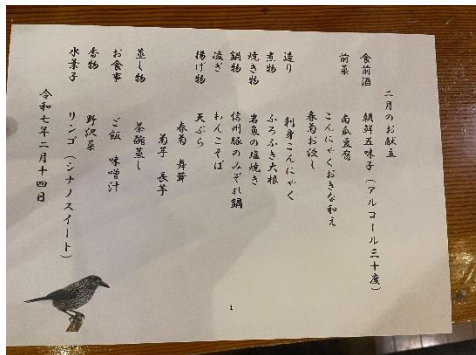 二月のお献立
食前酒 朝鮮五味子(アルコール三十度)
前菜 南瓜豆腐
こんにゃくおきな和え
春菊お浸し
造り 刺身こんにゃく
煮物 ふろふき大根
焼き物 岩魚の塩焼き
鍋物 信州豚のみぞれ鍋
凌ぎ わんこそば
揚げ物 天ぷら
春菊 舞茸
菊芋 長芋
蒸し物 茶碗蒸し
お食事 ご飯 味噌汁
香物 野沢菜
水菓子 リンゴ(シナノスイート)
令和七年二月十四日
1